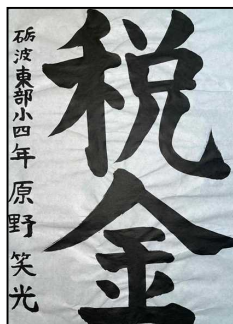 税金
砺波東部小四年 原野笑光